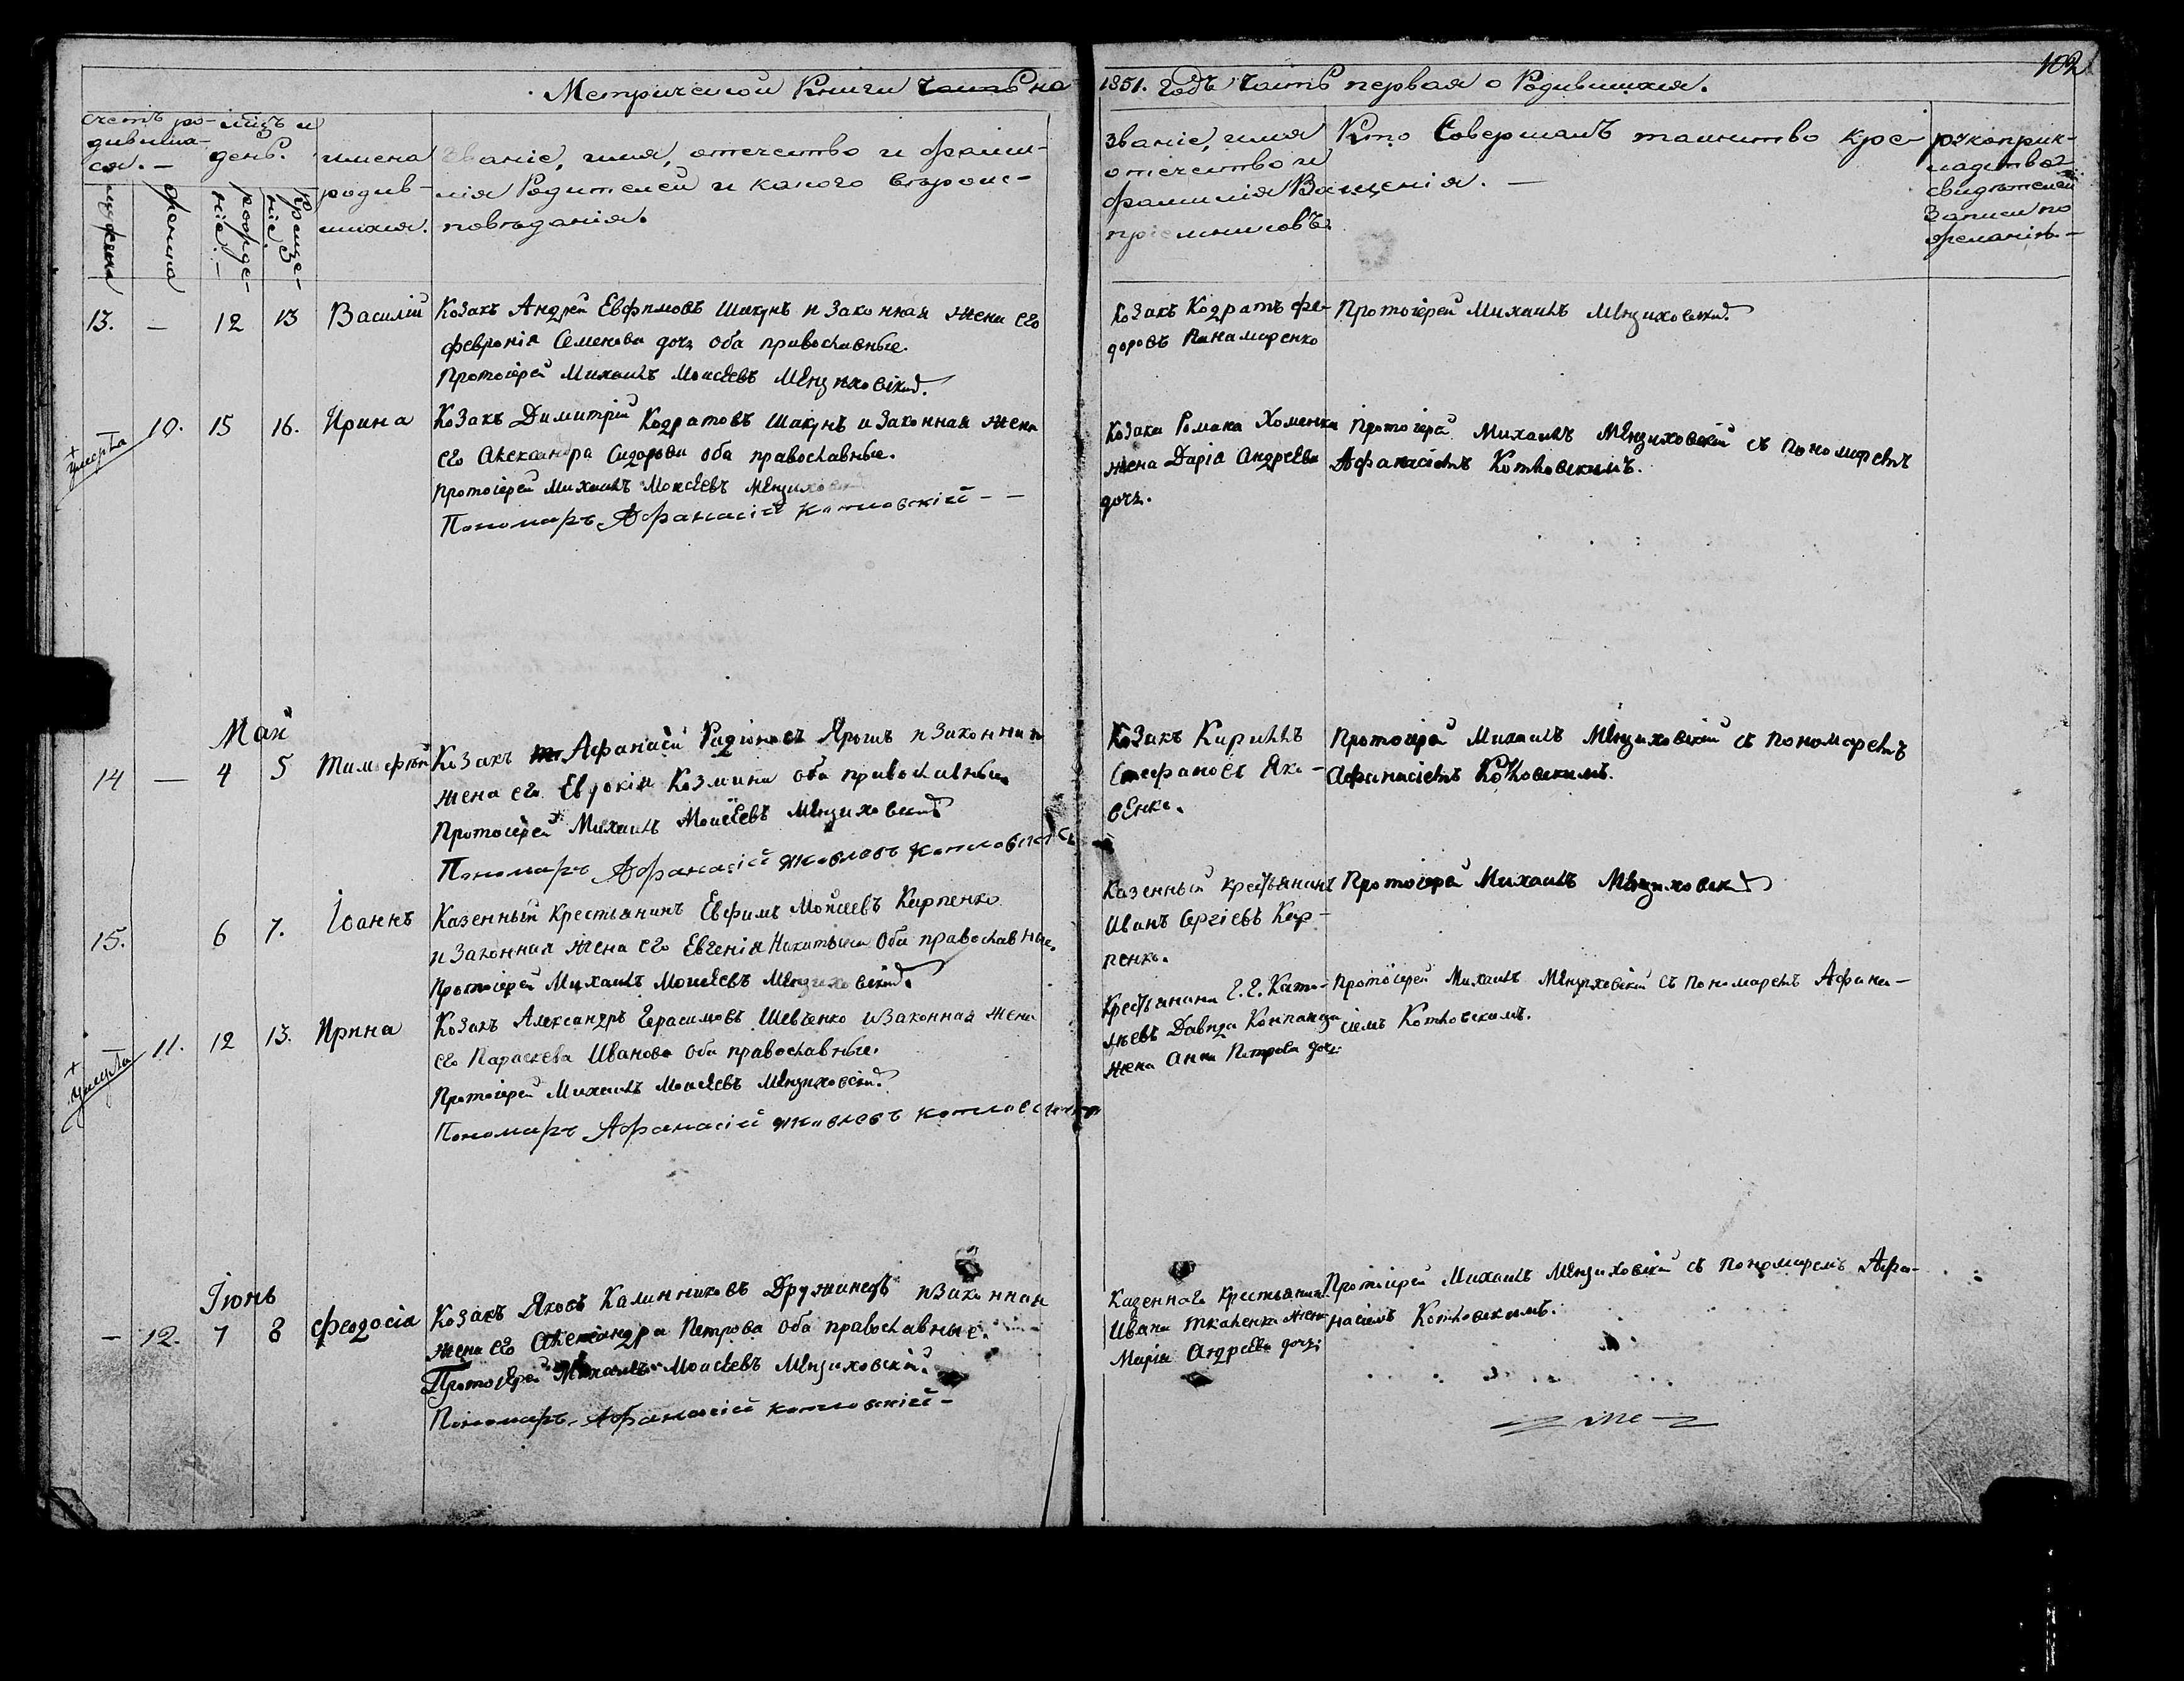 102
Метрической Книги Часть на 1851. Годъ Часть первая о Родившихся.
Счетъ ро-
дивших-
ся. —
мужеска
женска
мѣсцъ и
день.
рожде-
нія. —
Креще-
нія.
имена
родив-
шихся.
Званіе, имя, отечество и фами-
лія Родителей и какого вѣроис-
повѣданія.
Званіе, имя
отечество и
фамилія Вос-
пріемниковъ.
Кто Совершалъ таинство кре-
щенія. —
рукоприк-
ладство
свидѣтелей
Записи по
желанію. —
13. — 12 13 Василій
Козакъ Андрей Евфимовъ Шакунъ и Законная Жена его
Февронія Семенова доч. Оба православные.
Протоіерей Михаилъ Моисѣевъ
Козакъ Кодратъ Фе-
доровъ Панамаренко
Протоіерей Михаилъ
+ умерла
— 10. 15 16. Ирина
Козакъ Димитрій Кодратовъ Шакунъ и Законная Жена
его Александра Сидорова оба православные.
Протоіерей Михаилъ Моисѣевъ
Пономарь Афанасій Котловскій - -
Козака Романа Хоменка
жена Дарія Андреева
доч.
Протоіерей Михаилъ съ пономаремъ
Афанасіемъ Котловскимъ.
Май
14 — 4 5 Тимофей
Козакъ Афанасій Радіоновъ Ярошъ и Законная
жена его Евдокія Козмина оба православные.
Протоіерей Михаилъ Моисѣевъ
Пономарь Афанасій Яковлевъ Котловскій
Козакъ Кириллъ
Стефановъ Яко-
венко.
Протоіерей Михаилъ съ пономаремъ
Афанасіемъ Котловскимъ.
15. 6 7. Іоаннъ
Казенный Крестьянинъ Евфимъ Мойсеевъ Карпенко
и Законная жена его Евгенія Никитина Оба православные.
Протоіерей Михаилъ Моисѣевъ
Казенный крестьянинъ
Иванъ Сергіевъ Кар-
пенко.
Протоіерей Михаилъ
+ умерла
11. 12 13. Ирина
Козакъ Александръ Герасимовъ Шевченко и Законная жена
его Параскева Иванова Оба православные.
Протоіерей Михаилъ Моисѣевъ
Пономарь Афанасій Яковлевъ Котловскій
Крестьянина Г.Г.
Давида
жена Анна Петрова доч:
Протоіерей Михаилъ съ пономаремъ Афана-
сіемъ Котловскимъ.
Іюнь
— 12. 7 8 Феодосія
Козакъ Яковъ Калинниковъ Дружинецъ и Законная
жена его Александра Петрова Оба православные.
Протоіерей Михаилъ Моисѣевъ
Пономарь Афанасій Котловскій -
Казеннаго Крестьянина
Ивана Ткаленка жена
Марія Андреева доч:
Протоіерей Михаилъ съ пономаремъ Афа-
насіемъ Котловскимъ.